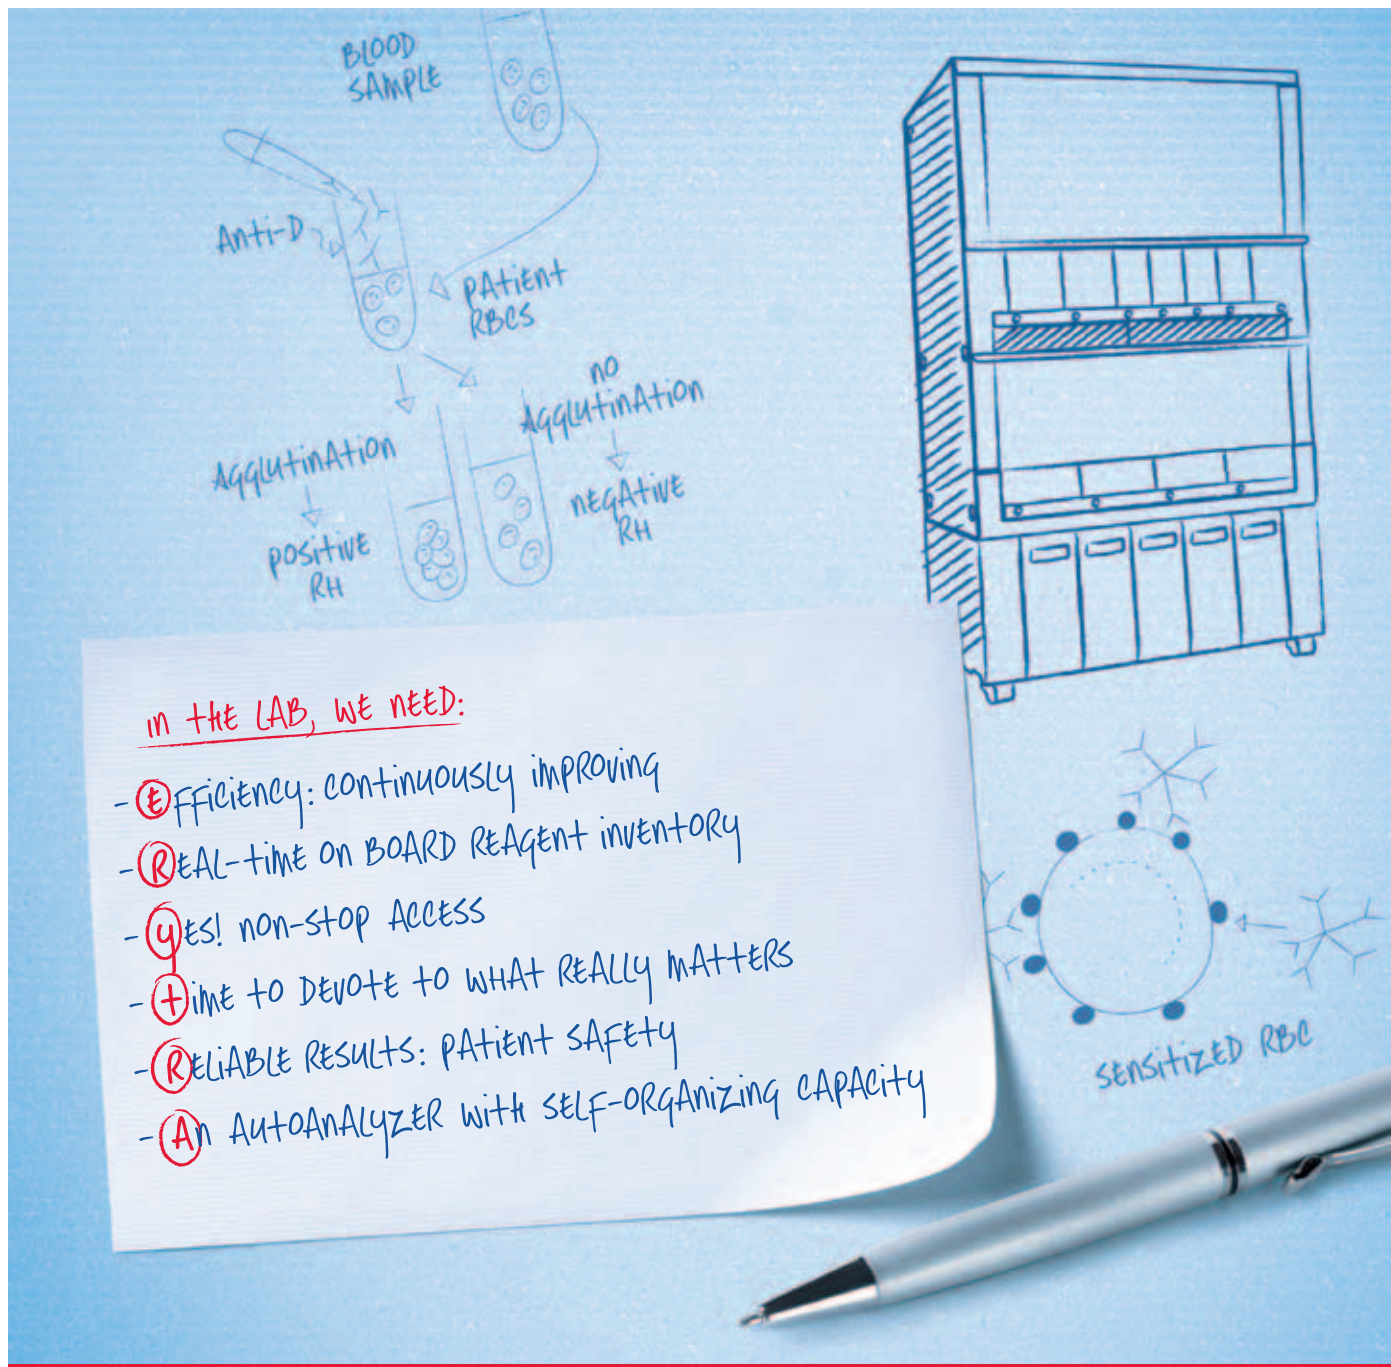 BLOOD
SAMPLE
Anti-D
PATIENT
RBCS
NO
AGGLUTINATION
AGGLUTINATION
NEGATIVE
RH
POSITIVE
RH
IN THE LAB, WE NEED:
- EFFICIENCY: CONTINUOUSLY IMPROVING
- REAL-TIME ON BOARD REAGENT INVENTORY
- YES! NON-STOP ACCESS
- TIME TO DEVOTE TO WHAT REALLY MATTERS
- RELIABLE RESULTS: PATIENT SAFETY
- AN AUTOANALYZER WITH SELF-ORGANIZING CAPACITY
SENSITIZED RBC